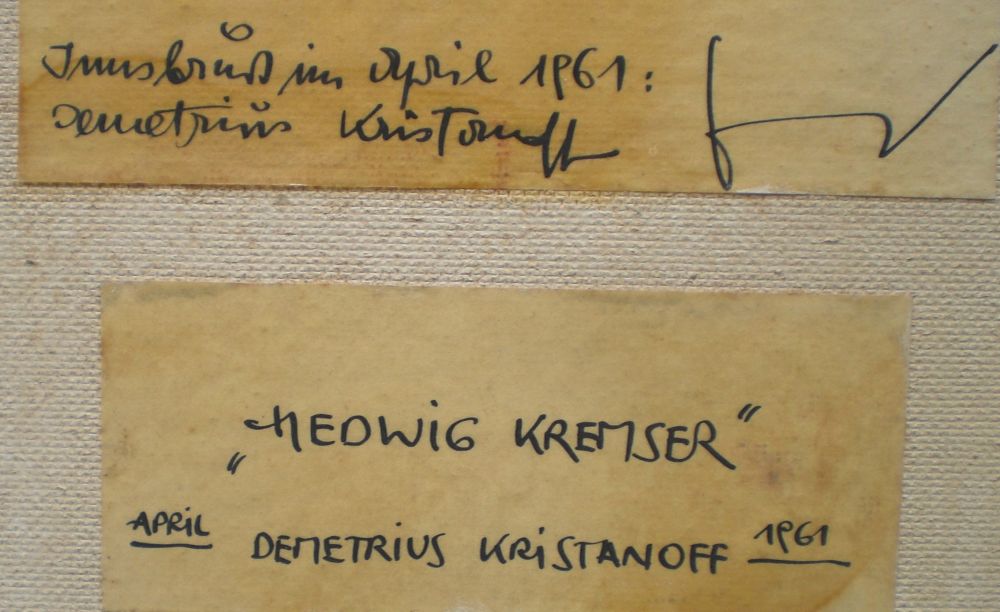 Innsbruck im April 1961:
Demetrius Kristanoff
„HEDWiG KREMSER“
APRiL DEMETRIUS KRiSTANOFF 1961